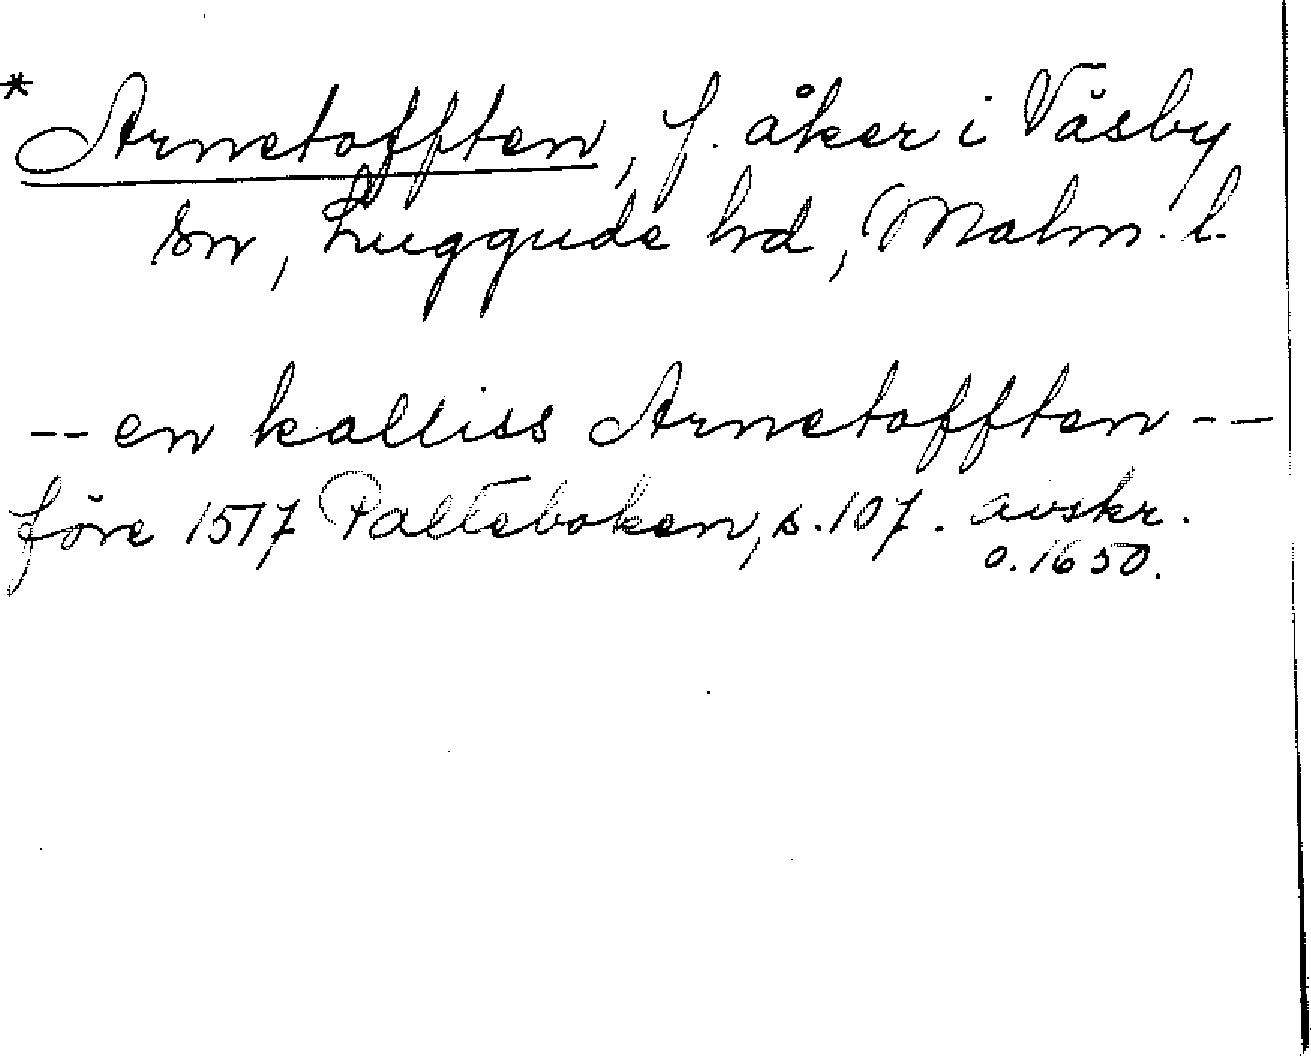 * Arnetofften, f. åker i Väsby
sn, Luggude hd, Malm. l.
-- en kalliss Arnetofften --
före 1517 Palteboken, s. 107. avskr.
o. 1650.